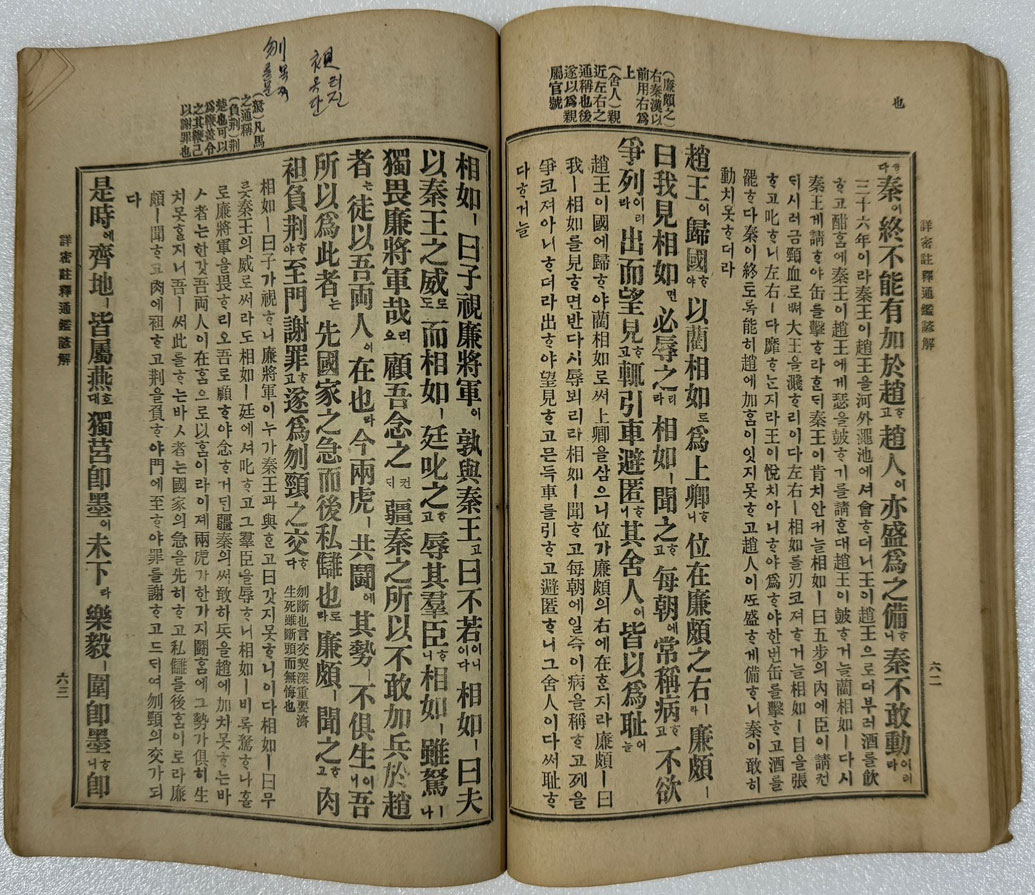 也
(廉頗之)
右秦漢以
前用右爲
上
(舍人)親
近左右之
通稱也後
遂以爲親
屬官號
詳密註釋通鑑諺解
六二
秦이終不能有加於趙ᄒᆞ고趙人이亦盛爲之備ᄒᆞ니秦不敢動이러라
三十六年이라秦王이趙王을河外澠池에셔會ᄒᆞ더니王이趙王으로더부러酒를飮
ᄒᆞ고酣ᄒᆞᆷ에秦王이趙王에게瑟을鼓ᄒᆞ기를請ᄒᆞᆫ대趙王이鼓ᄒᆞ거늘藺相如ㅣ다시
秦王게請ᄒᆞ야缶를擊ᄒᆞ라ᄒᆞᆫ디秦王이肯치안커늘相如ㅣ曰五步의內에臣이請컨
ᄃᆡ시러금頸血로ᄡᅥ大王을濺ᄒᆞ리이다左右ㅣ相如를刃코져ᄒᆞ거늘相如ㅣ目을張
ᄒᆞ고叱ᄒᆞ니左右ㅣ다靡ᄒᆞᄂᆞᆫ지라王이悅치아니ᄒᆞ야爲ᄒᆞ야한번缶를擊ᄒᆞ고酒를
罷ᄒᆞ다秦이終토록能히趙에加ᄒᆞᆷ이잇지못ᄒᆞ고趙人이ᄯᅩ盛ᄒᆞ게備ᄒᆞ니秦이敢히
動치못ᄒᆞ더라
趙王이歸國ᄒᆞ야以藺相如로爲上卿ᄒᆞ니位在廉頗之右ㅣ라廉頗ㅣ
曰我見相如면必辱之리라相如ㅣ聞之ᄒᆞ고每朝에常稱病ᄒᆞ고不欲
爭列이러라出而望見ᄒᆞ고輒引車避匿ᄒᆞ니其舍人이皆以爲恥어늘
趙王이國에歸ᄒᆞ야藺相如로써上卿을삼으니位가廉頗의右에在ᄒᆞᆫ지라廉頗ㅣ曰
我ㅣ相如를見ᄒᆞ면반다시辱뵈리라相如ㅣ聞ᄒᆞ고每朝에일즉이病을稱ᄒᆞ고列을
爭코져아니ᄒᆞ더라出ᄒᆞ야望見ᄒᆞ고믄득車를引ᄒᆞ고避匿ᄒᆞ니그舍人이다써恥ᄒᆞ
다ᄒᆞ거늘
袒
刎
(駑)凡馬
之通稱
(負荊)荊
楚也可以
爲鞭蓋令
之其鞭己
以謝罪也
相如ㅣ曰子視廉將軍이孰與秦王고曰不若이니이다相如ㅣ曰夫
以秦王之威로도而相如ㅣ廷叱之ᄒᆞ고辱其羣臣ᄒᆞ니相如ㅣ雖駑ㅣ나
獨畏廉將軍哉리오顧吾念之컨ᄃᆡ彊秦之所以不敢加兵於趙
者ᄂᆞᆫ徒以吾兩人이在也라今兩虎ㅣ共鬪에其勢ㅣ不俱生이니吾
所以爲此者ᄂᆞᆫ先國家之急而後私讎也로라廉頗ㅣ聞之ᄒᆞ고肉
袒負荊ᄒᆞ야至門謝罪ᄒᆞ고遂爲刎頸之交ᄒᆞ다刎斷也言交契深重要濟
生死雖斷頸而無悔也
相如ㅣ曰子가視ᄒᆞ니廉將軍이누가秦王과與ᄒᆞᆫ고曰갓지못ᄒᆞ니이다相如ㅣ曰무
릇秦王의威로써라도相如ㅣ廷에셔叱ᄒᆞ고그羣臣을辱ᄒᆞ니相如ㅣ비록駑ᄒᆞ나홀
로廉將軍을畏ᄒᆞ리오吾로顧ᄒᆞ야念ᄒᆞ거ᄃᆡᆫ彊秦의써敢히兵을趙에加치못ᄒᆞᄂᆞᆫ바
ㅅ者ᄂᆞᆫ한갓吾兩人이在ᄒᆞᆷ으로以ᄒᆞᆷ이라이졔兩虎가한가지鬪ᄒᆞᆷ에그勢가俱히生
치못ᄒᆞᆯ지니吾ㅣ써此를ᄒᆞᄂᆞᆫ바ㅅ者ᄂᆞᆫ國家의急을先히ᄒᆞ고私讎를後ᄒᆞᆷ이로라廉
頗ㅣ聞ᄒᆞ고肉에袒ᄒᆞ고荊을負ᄒᆞ야門에至ᄒᆞ야罪를謝ᄒᆞ고드ᄃᆡ여刎頸의交가되
다
是時에齊地ㅣ皆屬燕호ᄃᆡ獨莒卽墨이未下라樂毅ㅣ圍卽墨ᄒᆞ니卽
詳密註釋通鑑諺解
六三